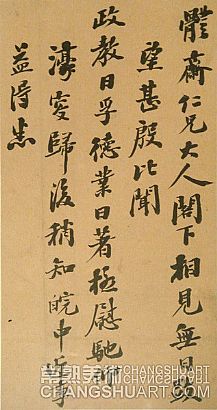 體齋仁兄大人閣下相見無日跂
望甚殷比聞
政教日孚德業日著極慰馳
濠安歸後稍知皖中
益得悉
常熟美術
CHANGSHUART